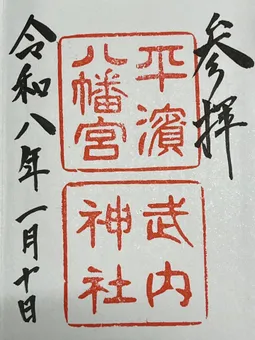 参拝
平濱
八幡宮
武内
神社
令和八年一月十日